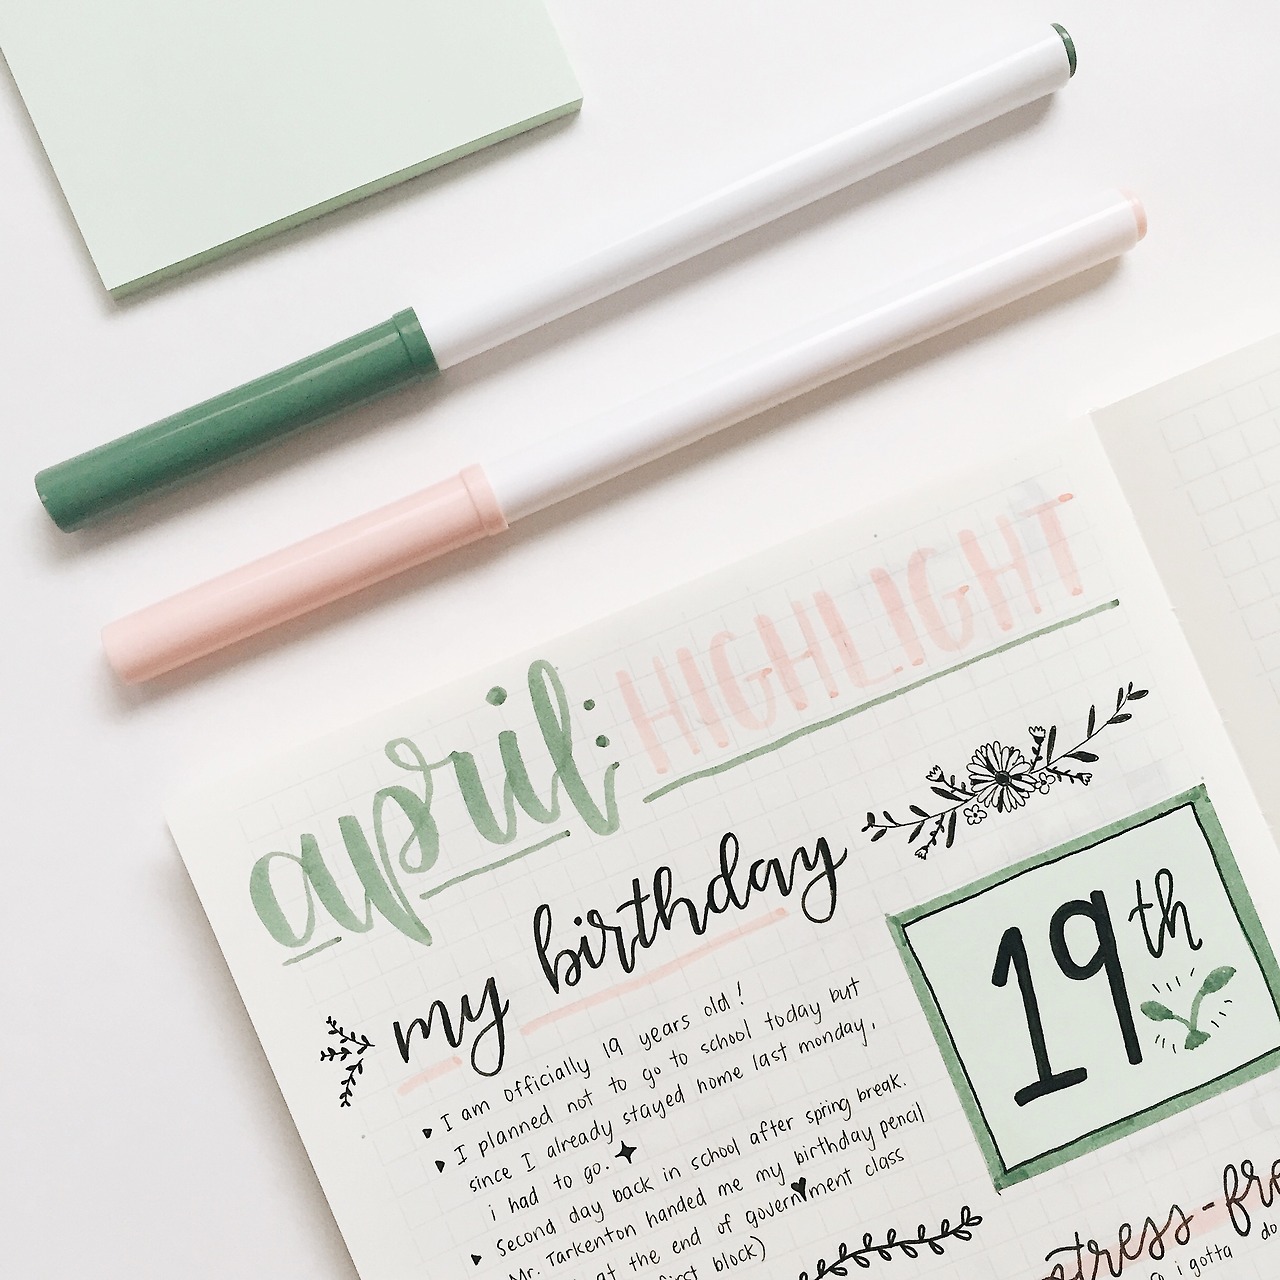 april: HIGHLIGHT
my birthday
19th
I am officially 19 years old!
I planned not to go to school today but
since I already stayed home last monday,
i had to go.
Second day back in school after spring break.
Mr. Tarkenton handed me my birthday pencil
at the end of government class
first block)
stress-fre
i gotta do